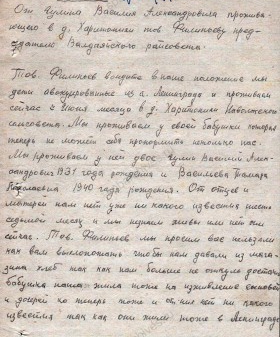 От Чумина Василия Александровича прожива-
ющего в д. Харитонихи тов Филипьеву пред-
седателю Валдайского райсовета.
Тов. Филипьев войдите в наше положение мы
дети эвакуированые из г. Ленинграда и проживаем
сейчас с июня месяца в д. Харитонихи
сельсовета. Мы проживаем у своей бабушки которая
теперь не может себя прокормить нетолько нас.
Мы проживаем у ней двое Чумин Василий Алек-
сандрович 1931 года рождения и Васильева Тамара
1940 года рождения. От отцов и
матерей нам нет уже ни какого известия шесть
седьмой месяц и мы незнаем живы или нет они
сейчас. Тов. Филипьев мы просим вас нельзяли
как вам выхлопотать чтобы нам давали из мага-
зина хлеб так как нам больше не откуда достать
бабушка наша жила тоже на иждивение сыновей
и дочерей но теперь тоже и от них нет ни какого
известия так как они жили тоже в Ленинграде